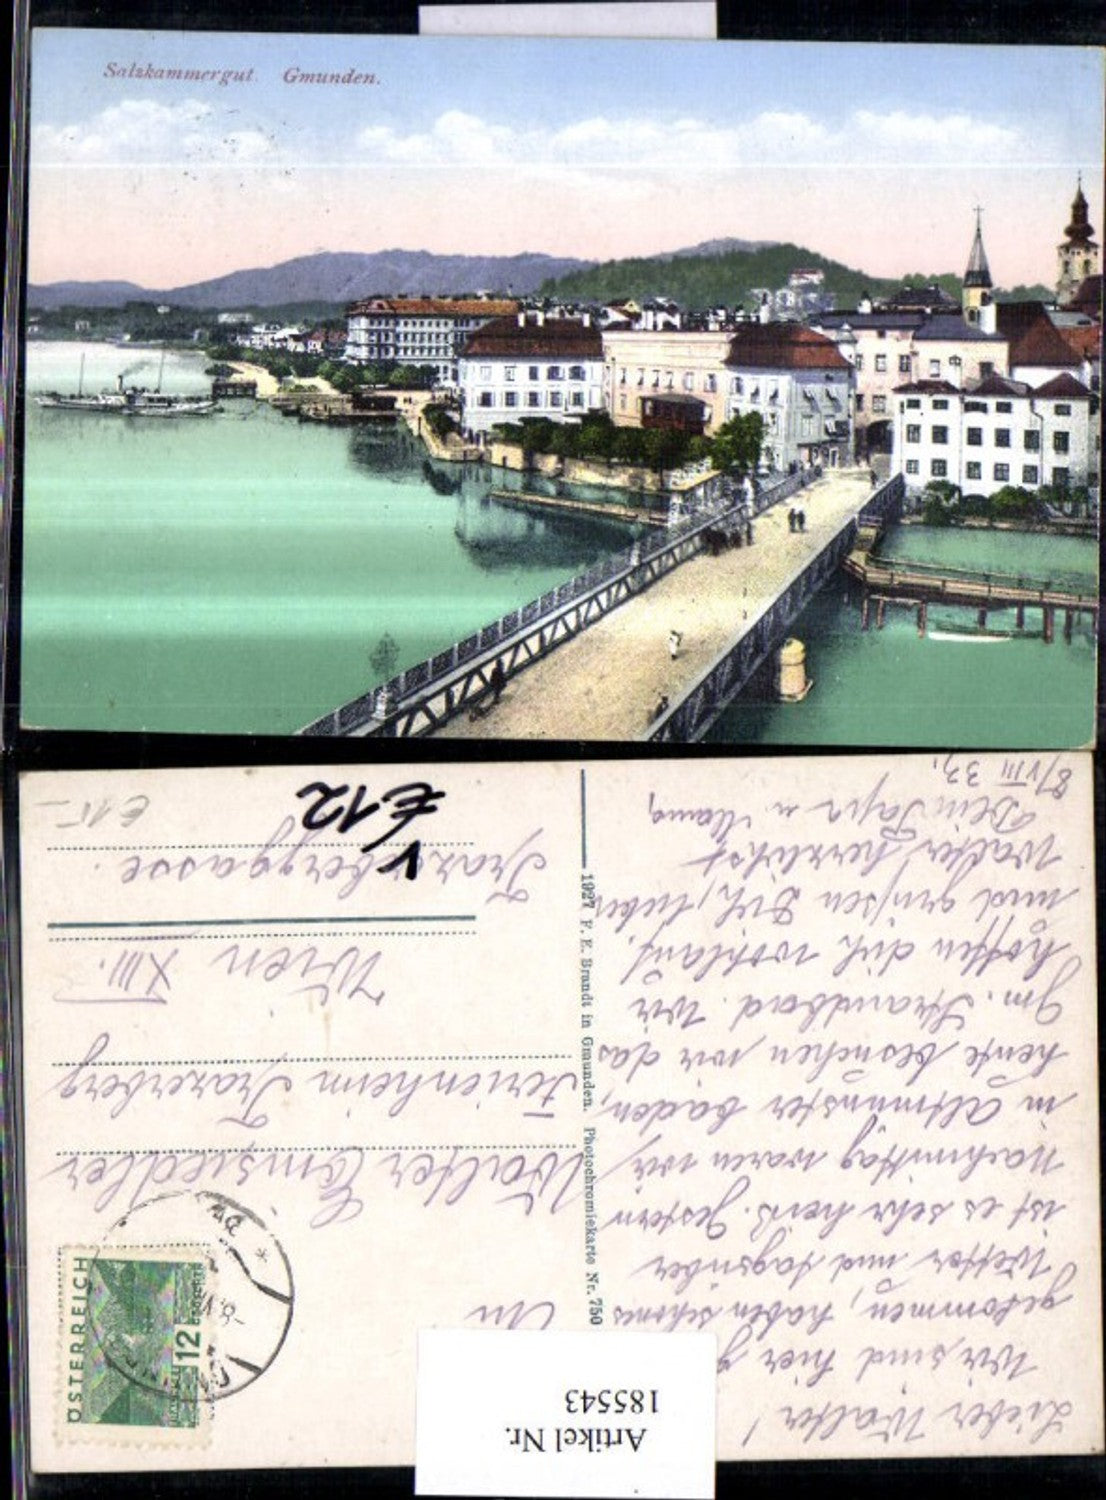 Salzkammergut. Gmunden.
8/VIII 33.
Lieber Walter!
Wir sind hier
gekommen, haben schönes
Wetter und tagsüber
ist es sehr heiß. Gestern
Nachmittag waren wir
in Altmünster baden,
heute besuchen wir das
Gm. Strandbad. Wir
hoffen dich wohlauf
und grüßen Dich, lieber
Walter herzlichst
Dein Papa u. Mama
1927 F. E. Brandt in Gmunden. Photochromiekarte Nr. 750
An
Walter Einsiedler
Ferienheim Trazerberg
Wien XIII.
Trazerberggasse.
V
€12
€ 15-
ÖSTERREICH
12
GROSCHEN
Artikel Nr.
185543